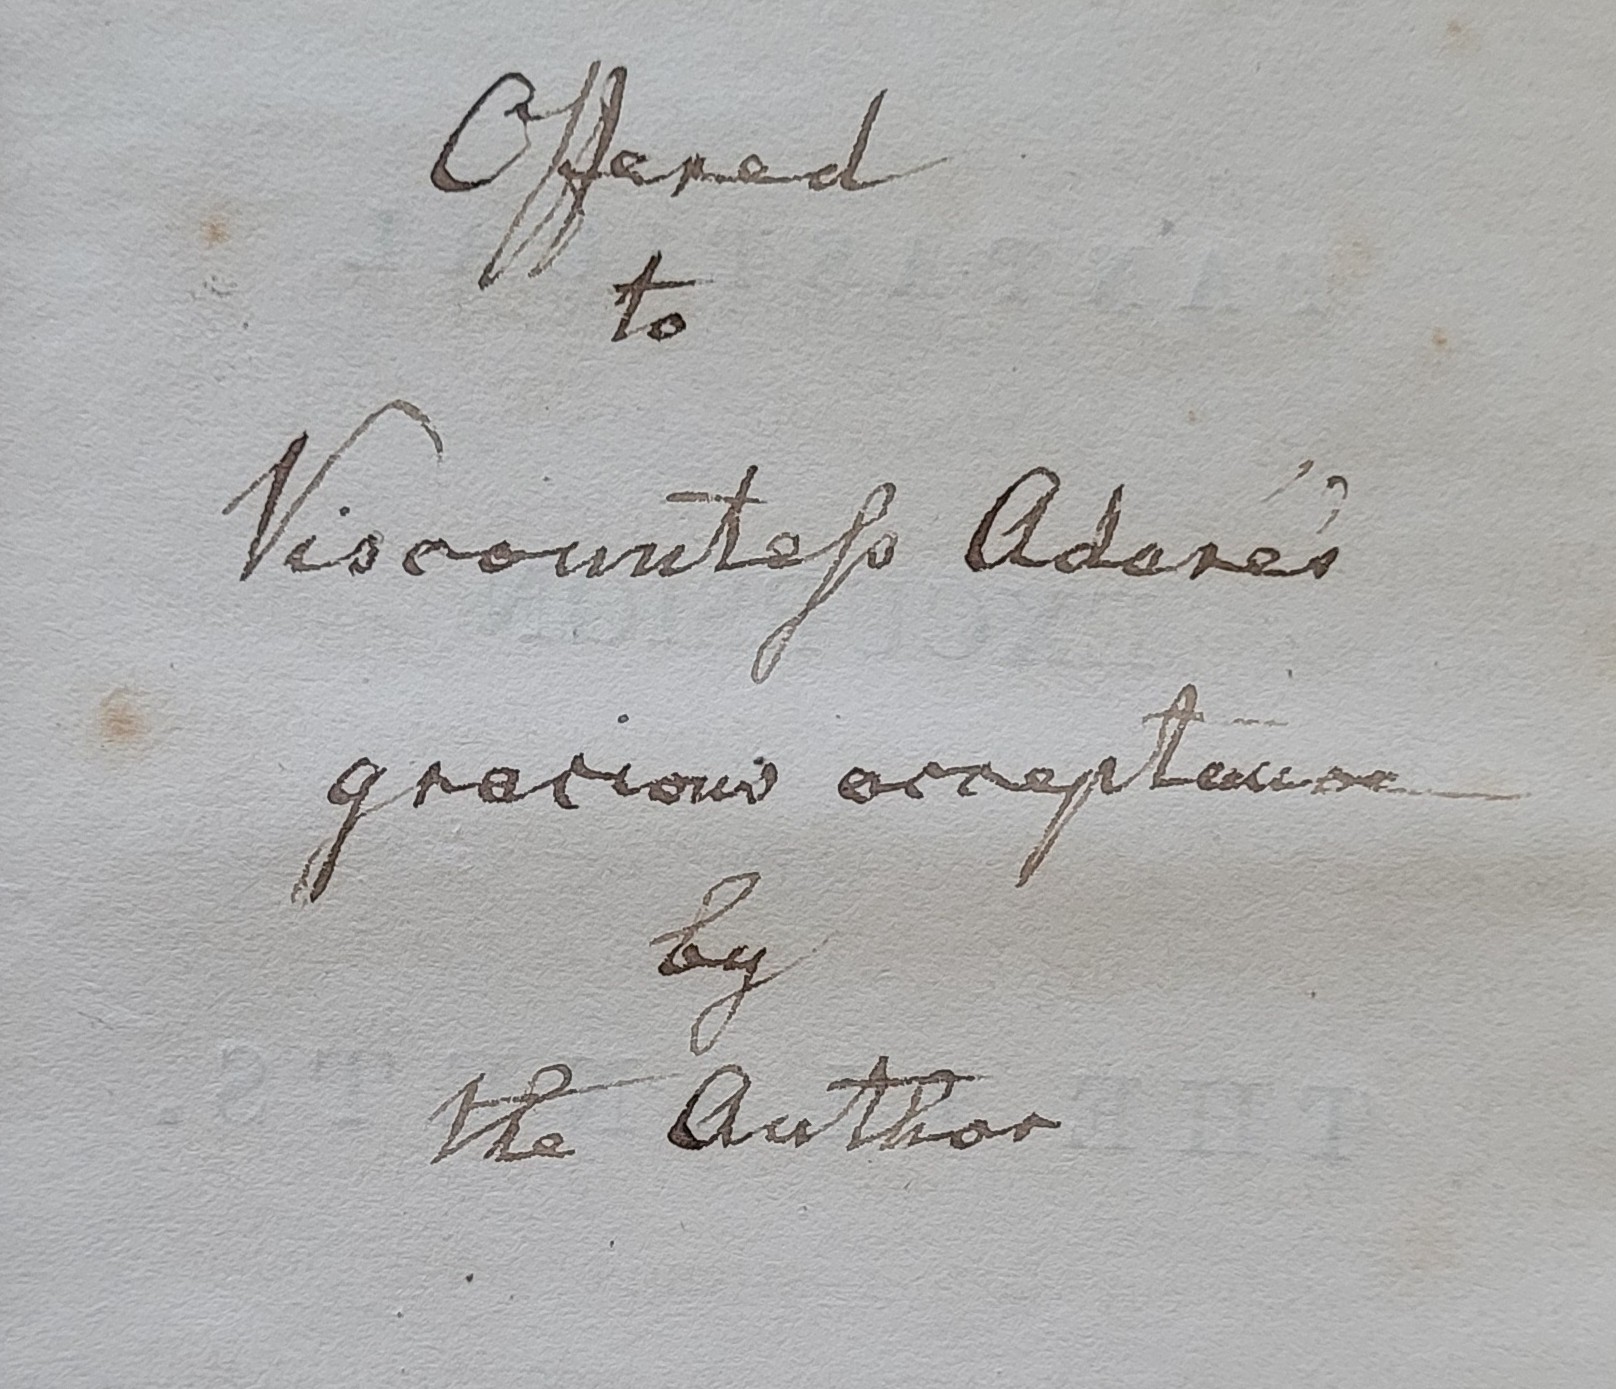 Offered
to
Viscountess Adare's
gracious acceptance
by
the Author